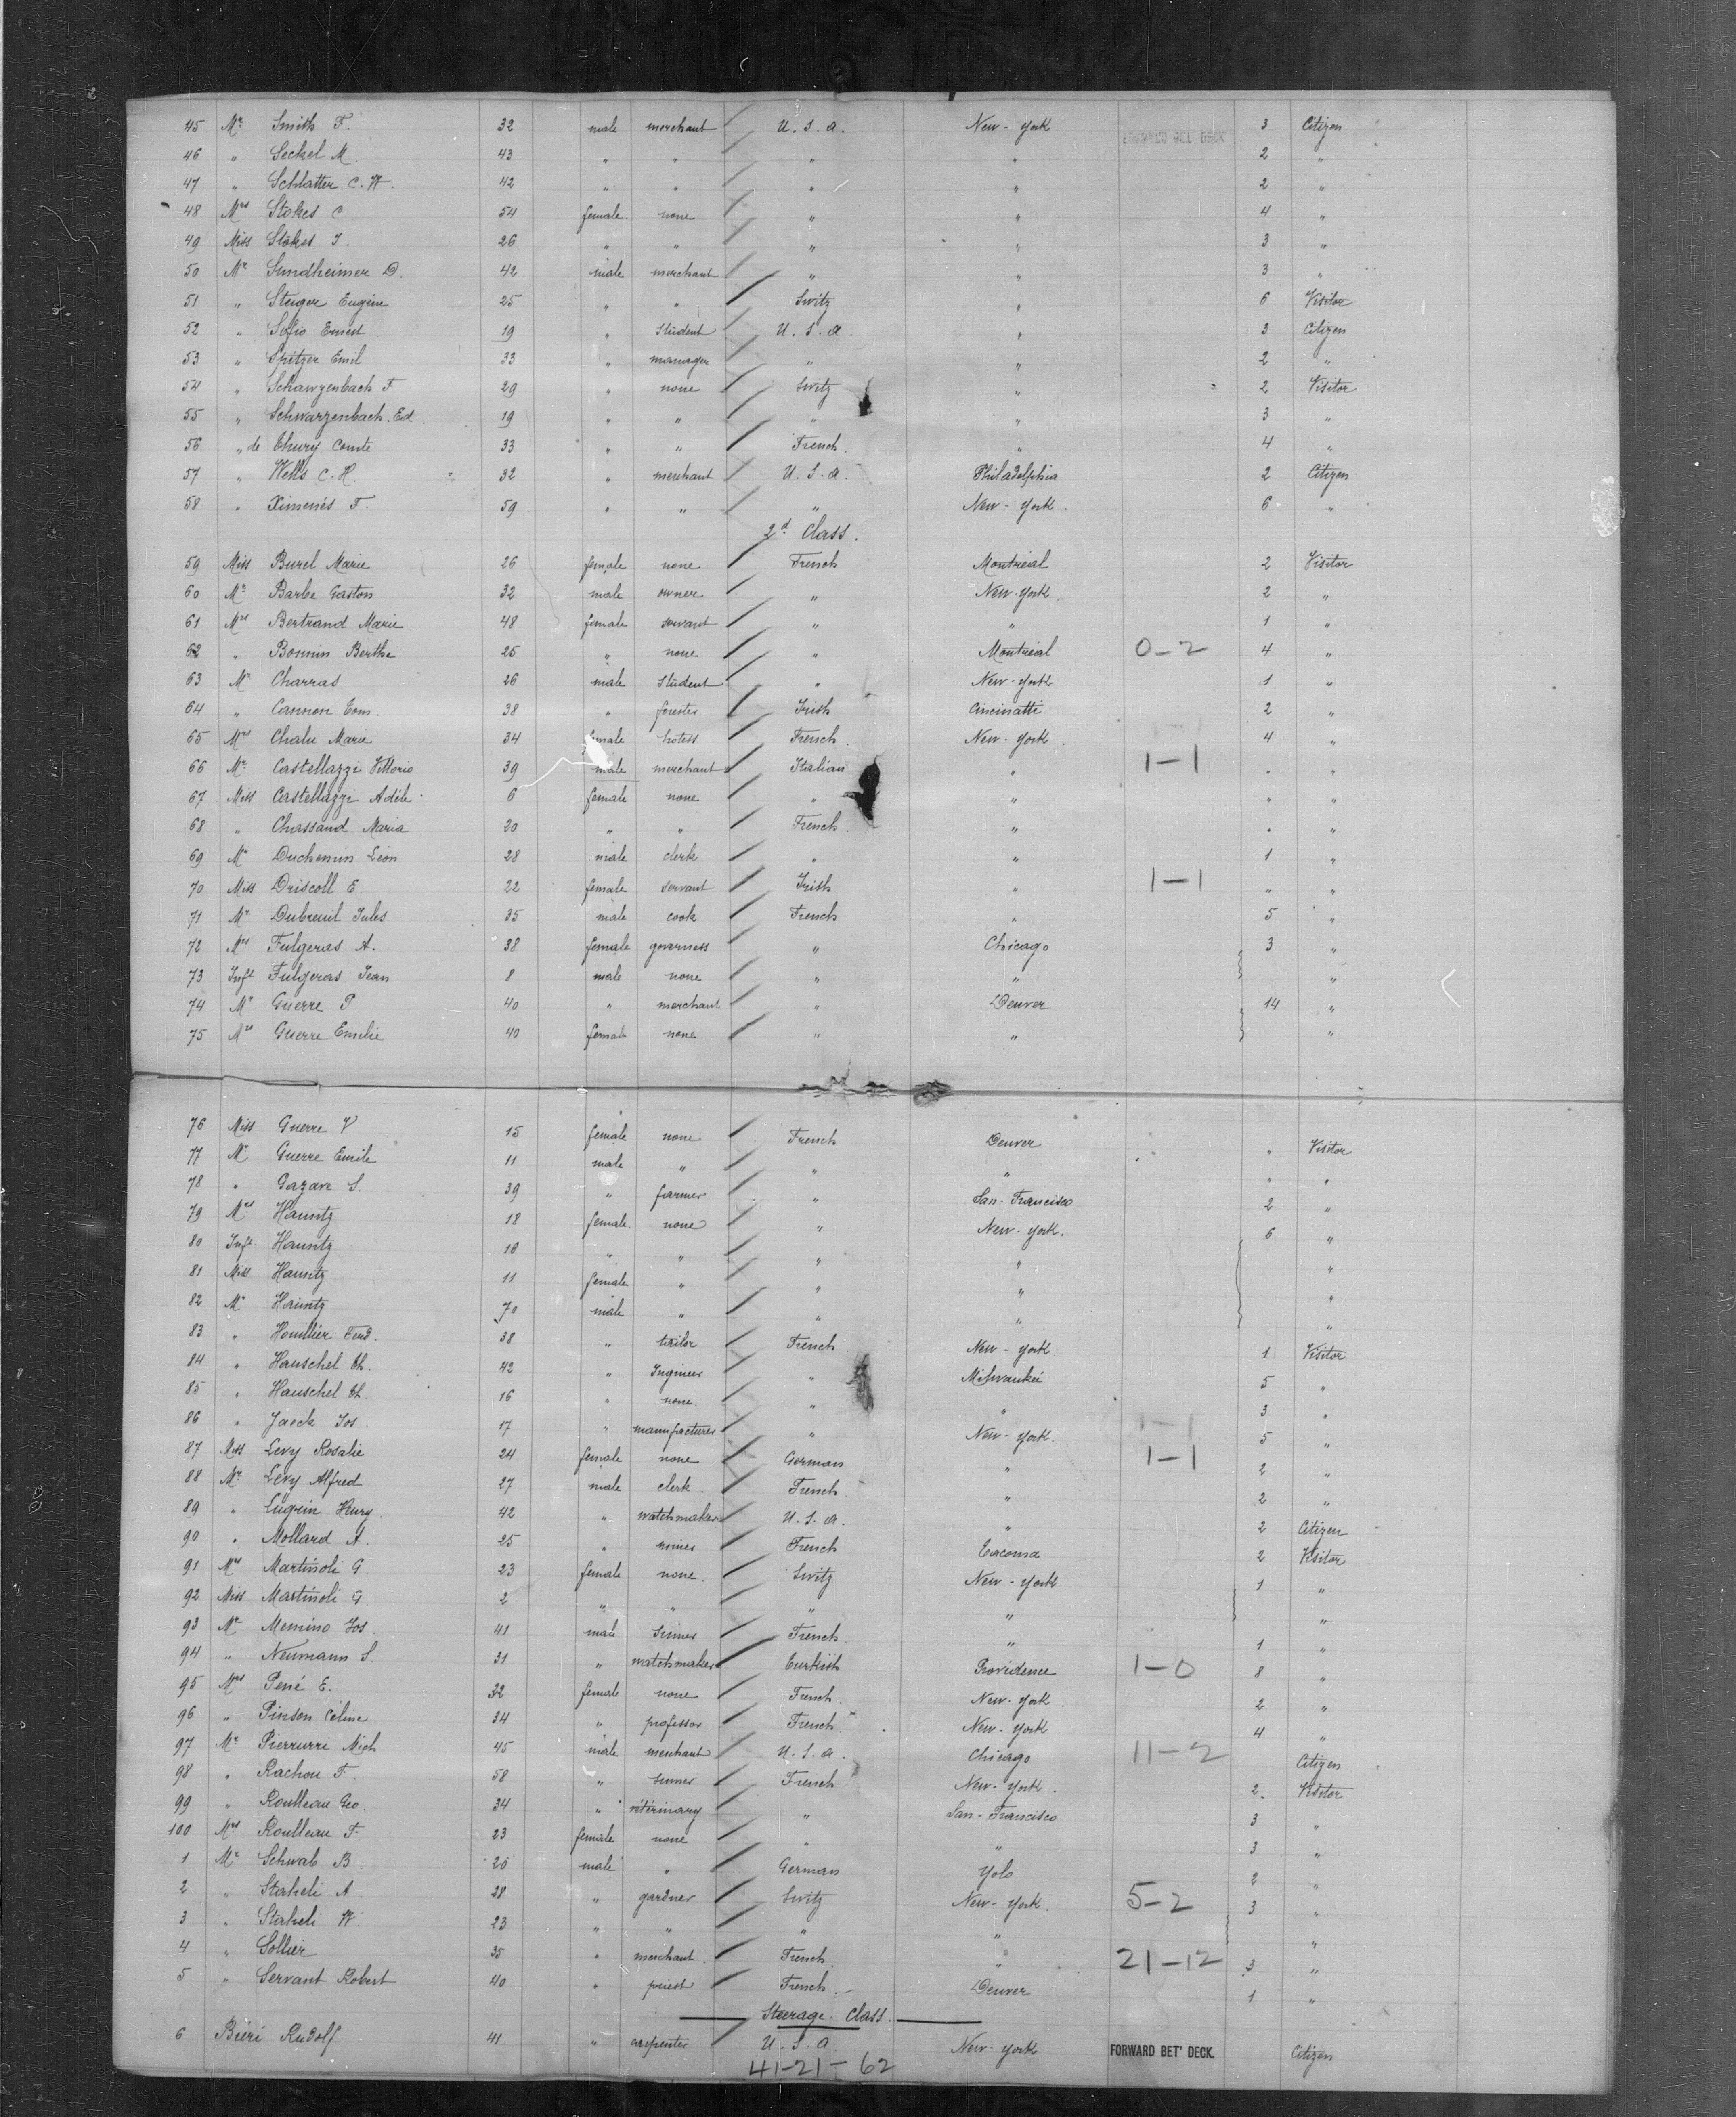 45 Mr Smith F. 32 male merchant U.S.a. New-York 3 Citizen
46 " Seckel M. 43 " " " " 2 "
47 " Schlatter C. W. 42 " " " " 2 "
48 Mrs Stokes C 54 female none " " 4 "
49 Miss Stokes J. 26 " " " " 3 "
50 Mr Sundheimer D. 42 male merchant " " 3 "
51 " Steiger Eugène 25 " " Switz " 6 Visitor
52 " Ernest 19 " Student U.S.a. " 3 Citizen
53 " Spitzer Emil 33 " manager " " 2 "
54 " Schawzenbach F 29 " none Switz " 2 Visitor
55 " Schwarzenbach Ed. 19 " " " " 3 "
56 " de Thury Comte 33 " " French " 4 "
57 " Wells C. H. 32 " merchant U.S.a. Philadelphia 2 Citizen
58 " Ximenès F. 59 " " " New-York. 6 "
2d Class.
59 Miss Burel Marie 26 female none French Montréal 2 Visitor
60 Mr Barbe Gaston 32 male owner " New-York 2 "
61 Mrs Bertrand Marie 48 female servant " " 1 "
62 " Bonnin Berthe 25 " none " Montréal 0-2 4 "
63 Mr Charras 26 male Student " New-York 1 "
64 " Cannon Tom. 38 " forester Irish Cincinatti 2 "
65 Mrs Chalu Marie 34 female hotess French New-York 4 "
66 Mr Castellazzi Vittorio 39 male merchant Italian " 1-1 " "
67 Miss Castellazzi Adèle 6 female none " " " "
68 " Chassand Maria 20 " " French " " "
69 Mr Duchemin Léon 28 male clerk " " 1 "
70 Miss Driscoll E. 22 female servant Irish " 1-1 " "
71 Mr Dubreuil Jules 35 male cook French " 5 "
72 Mrs Fulgeras A. 38 female governess " Chicago 3 "
73 Inft Fulgeras Jean 8 male none " " "
74 Mr Guerre P 40 " merchant " Denver 14 "
75 Mrs Guerre Emilie 40 female none " " "
76 Miss Guerre V 15 female none French Denver " Visitor
77 Mr Guerre Emile 11 male " " " " "
78 " Gazave S. 39 " farmer " San-Francisco 2 "
79 Mrs Hauntz 18 female none " New-York. 6 "
80 Inft Hauntz 10 " " " " "
81 Miss Hauntz 11 female " " " "
82 Mr Hauntz male " " " "
83 " Houllier Ferd. 38 " French New-York 1 Visitor
84 " Hauschel Ch. 42 " Ingineer " Milwaukee 5 "
85 " Hauschel Ch. 16 " none " " 3 "
86 " Jaeck Jos. 17 " manufacturer " New-York. 1-1 5 "
87 Miss Levy Rosalie 24 female none German " 1-1 2 "
88 Mr Levy Alfred 27 male clerk. French " 2 "
89 " Lugrin Henry 42 " watchmaker U.S.a. " 2 Citizen
90 " Mollard A. 25 " French Tacoma 2 Visitor
91 Mrs Martinoli G. 23 female none. Switz New-York 1 "
92 Miss Martinoli G 2 " " " " "
93 Mr Memino Jos. 41 male French " 1 "
94 " Neumann S. 31 " watchmaker Turkish Providence 1-0 8 "
95 Mrs Pené E. 32 female none French. New-York 2 "
96 " Pinson Céline 34 " professor French. New-York 4 "
97 Mr Pierrurri Mich 45 male merchant U.S.a. Chicago 11-2 Citizen
98 " Rachou F. 58 " French New-York. 2. Visitor
99 " Roulleau Geo. 34 " vétérinary " San-Francisco 3 "
100 Mrs Roulleau F. 23 female none " " 3 "
1 Mr Schwab B 20 male " German Yolo 2 "
2 " Staheli A 28 " gardner Switz New-York. 5-2 3 "
3 " Staheli W. 23 " " " " "
4 " Sollier 35 " merchant. French " 21-12 3 "
5 " Servant Robert 40 " priest French. Denver 1 "
Steerage Class.
6 Bieri Rudolf 41 " carpenter U.S.a New-York FORWARD BET' DECK. Citizen
41-21-62